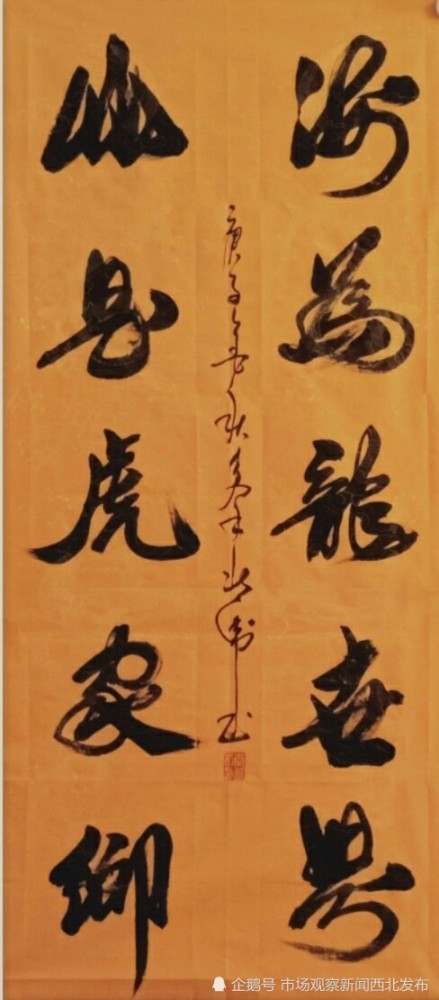 海為龍世界
庚子年秋
山是虎家鄉
企鹅号 市场观察新闻西北发布